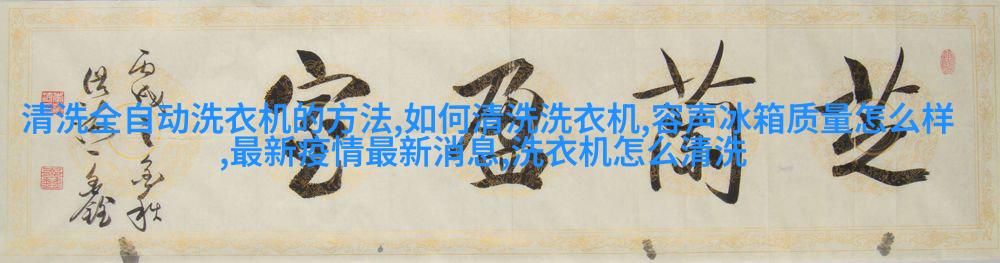 芝蘭盈室
丙戌之金秋
清洗全自动洗衣机的方法,如何清洗洗衣机,容声冰箱质量怎么样
,最新疫情最新消息,洗衣机怎么清洗